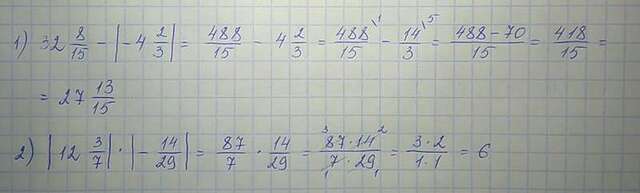 1) 32 8/15 - |-4 2/3| = 488/15 - 4 2/3 = 488\1/15 - 14\5/3 = 488-70/15 = 418/15 =
= 27 13/15
2) |12 3/7| · |-14/29| = 87/7 · 14/29 = 3 87·14 2/1 7·29 1 = 3·2/1·1 = 6